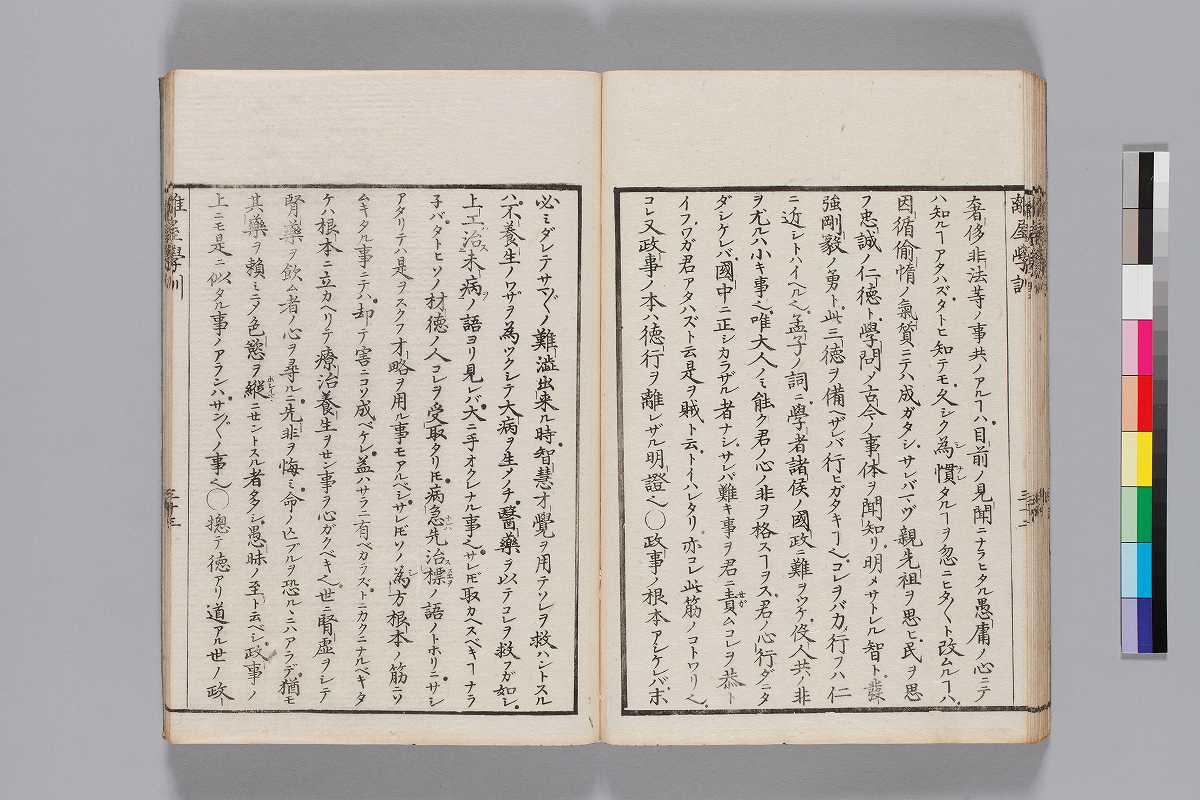 離屋學訓
奢侈非法等ノ事共ノアルヿハ目前ノ見聞ニナラヒタル愚庸ノ心ニテ
ハ知ルヿアタハズタトヒ知テモ久シク為慣タルヿヲ忽ニヒタ〳〵ト改ムルヿハ
因循偷惰ノ氣質ニテハ成ガタシサレバマヅ親先祖ヲ思ヒ民ヲ思
フ忠誠ノ仁徳ト學問ノ古今ノ事体ヲ聞知リ明メサトレル智ト
強剛毅ノ勇ト此三徳ヲ備ヘザレバ行ヒガタキヿ也コレヲバカ行フハ仁
ニ近シトハイヘルベシ孟子ノ詞ニ學者諸侯ノ國政ニ難ヲツケ佞人共ノ非
ヲ尤ルハ小キ事也唯大人ノミ能ク君ノ心ノ非ヲ格スヿヲス君ノ心行ダニタ
ダシケレバ國中ニ正シカラザル者ナシサレバ難キ事ヲ君ニ責ムコレヲ恭ト
イフワガ君アタハズト云是ヲ賊ト云トイハレタリ亦コレ此筋ノコトワリ也
コレ又政事ノ本ハ徳行ヲ離レザル明證也〇政事ノ根本アシケレバホ
必ミダレテサマ〴〵ノ難澁出来ル時智慧才覺ヲ用テソレヲ救ハントスル
ハ不養生ノワザヲ為ツクシテ大病ヲ生ノノチ醫藥ヲ以テコレヲ救フガ如シ
上工治未病ノ語ヨリ見レバ大ニ手オクレナル事也サレドモ取カヘスベキヿナラ
子バタトヒソノ材徳ノ人コレヲ受取タリトモ病急先治標ノ語ノトホリニサシ
アタリテハ是ヲスクフ才略ヲ用ル事モアルベシサレドモソノ為方根本ノ筋ニソ
ムキタル事ニテハ却テ害ニコソ成ベケレ益ハサラニ有ベカラズトニカクニナルベキタ
ケハ根本ニ立カヘリテ療治養生ヲセン事ヲ心ガクベキ也世ニ腎虚ヲシテ
腎藥ヲ飲ム者ノ心ヲ尋ルニ先非ヲ悔ミ命ノ亡ブルヲ恐ルルニハアラデ猶モ
其藥ヲ頼ミニテノ色慾ヲ縦ニセントスル者多シ愚昧ノ至ト云ベシ政事ノ
上ニモ是ニ似タル事ノアランハサン〴〵ノ事也〇揔テ徳アリ道アル世ノ政ハ
離屋學訓
三十三